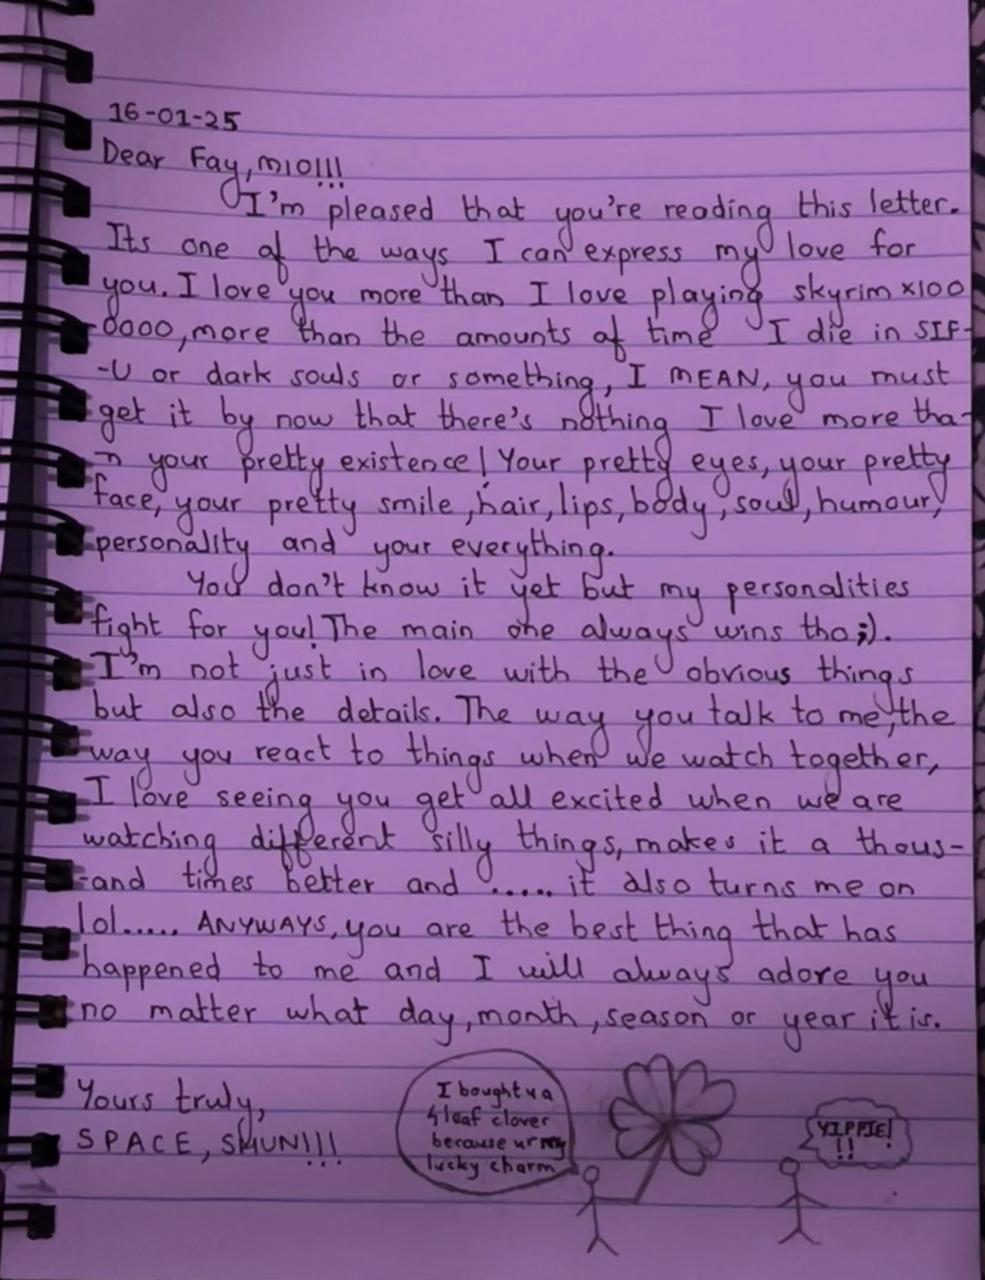 16-01-25
Dear Fay, mio!!!
I'm pleased that you're reading this letter.
Its one of the ways I can express my love for
you. I love you more than I love playing skyrim x100
0000, more than the amounts of time I die in SIF-
-U or dark souls or something, I MEAN, you must
get it by now that there's nothing I love more tha-
n your pretty existence! Your pretty eyes, your pretty
face, your pretty smile, hair, lips, body, soul, humour,
personality and your everything.
You don't know it yet but my personalities
fight for you! The main one always wins tho ;).
I'm not just in love with the obvious things
but also the details. The way you talk to me, the
way you react to things when we watch together,
I love seeing you get all excited when we are
watching different silly things, makes it a thous-
-and times better and ..... it also turns me on
lol..... ANYWAYS, you are the best thing that has
happened to me and I will always adore you
no matter what day, month, season or year it is.
Yours truly,
SPACE, SHUN!!!
I bought u a
4 leaf clover
because ur my
lucky charm
YIPPIE!
!!